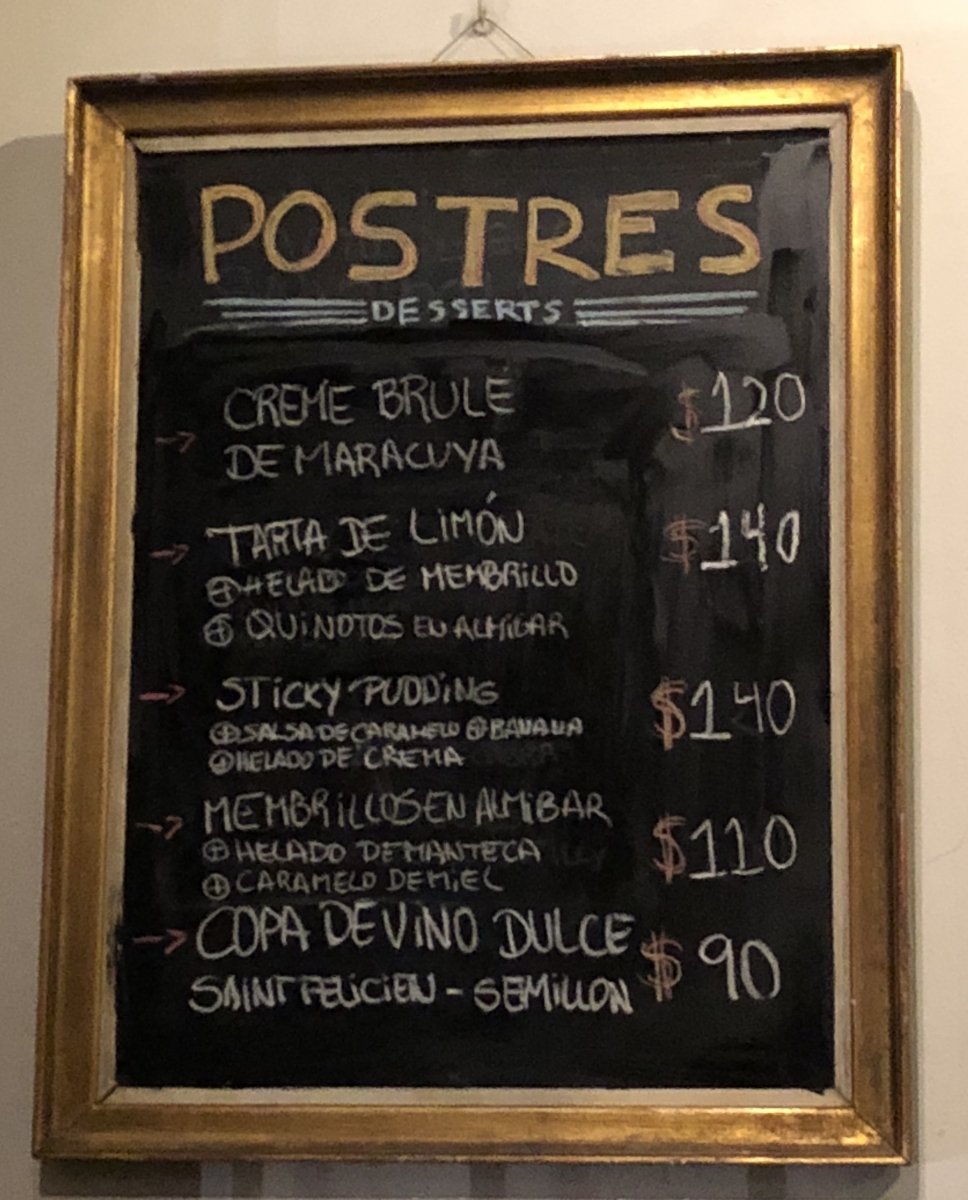 POSTRES
DESSERTS
CREME BRULÉ $120
DE MARACUYA
TARTA DE LIMÓN $140
⊕ HELADO DE MEMBRILLO
⊕ QUINOTOS EN ALMIBAR
STICKY PUDDING $140
⊕ SALSA DE CARAMELO ⊕ BANANA
⊕ HELADO DE CREMA
MEMBRILLOS EN ALMIBAR $110
⊕ HELADO DE MANTECA
⊕ CARAMELO DE MIEL
COPA DE VINO DULCE $90
SAINT FELICIEN - SEMILLON